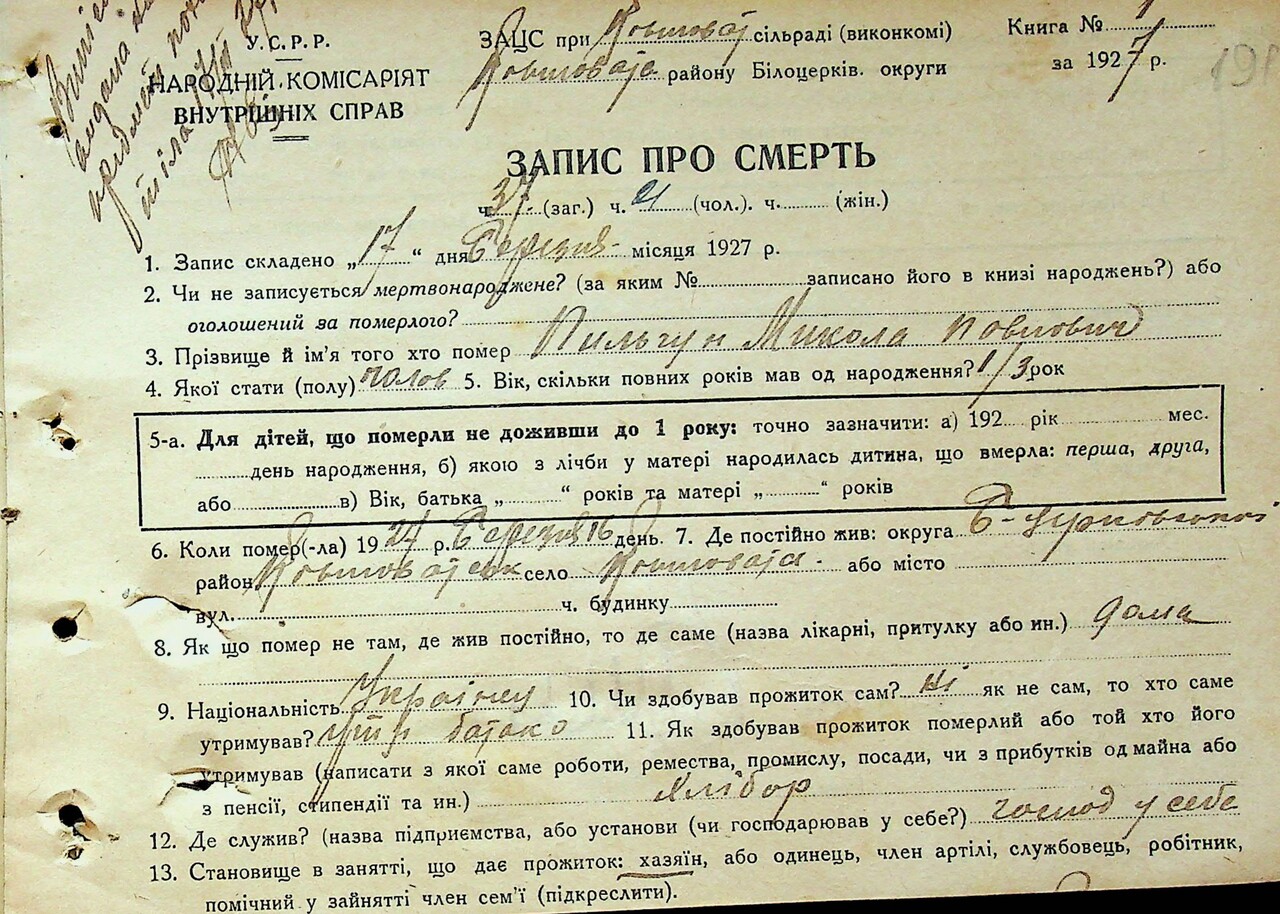 У.С.Р.Р.
НАРОДНІЙ КОМІСАРІЯТ
ВНУТРІШНІХ СПРАВ
ЗАЦС при Ковшоват сільраді (виконкомі)
Ковшовата району Білоцерків. округи
Книга № 1
за 1927 р.
191
ЗАПИС ПРО СМЕРТЬ
ч. 37 (заг.) ч. 21 (чол.). ч. (жін.)
1. Запис складено „17“ дня Березня місяця 1927 р.
2. Чи не записується мертвонароджене? (за яким № записано його в книзі народжень?) або
оголошений за померлого?
3. Прізвище й ім'я того хто помер Пильгун Микола Повлович
4. Якої стати (полу) 5. Вік, скільки повних років мав од народження? 1/3 рок
5-а. Для дітей, що померли не доживши до 1 року: точно зазначити: а) 192 рік мес.
день народження, б) якою з лічби у матері народилась дитина, що вмерла: перша, друга,
або в) Вік, батька „ “ років та матері „ “ років
6. Коли помер(-ла) 1927 р. Березня 16 день. 7. Де постійно жив: округа
район село Ковшовата або місто
вул. ч. будинку
8. Як що помер не там, де жив постійно, то де саме (назва лікарні, притулку або ин.) дома
9. Національність 10. Чи здобував прожиток сам? ні як не сам, то хто саме
утримував? утр батько 11. Як здобував прожиток померлий або той хто його
утримував (написати з якої саме роботи, ремества, промислу, посади, чи з прибутків од майна або
з пенсії, стипендії та ин.) Хлібор
12. Де служив? (назва підприємства, або установи (чи господарював у себе?) господ у себе
13. Становище в занятті, що дає прожиток: хазяїн, або одинець, член артілі, службовець, робітник,
помічний у зайнятті член сем'ї (підкреслити).